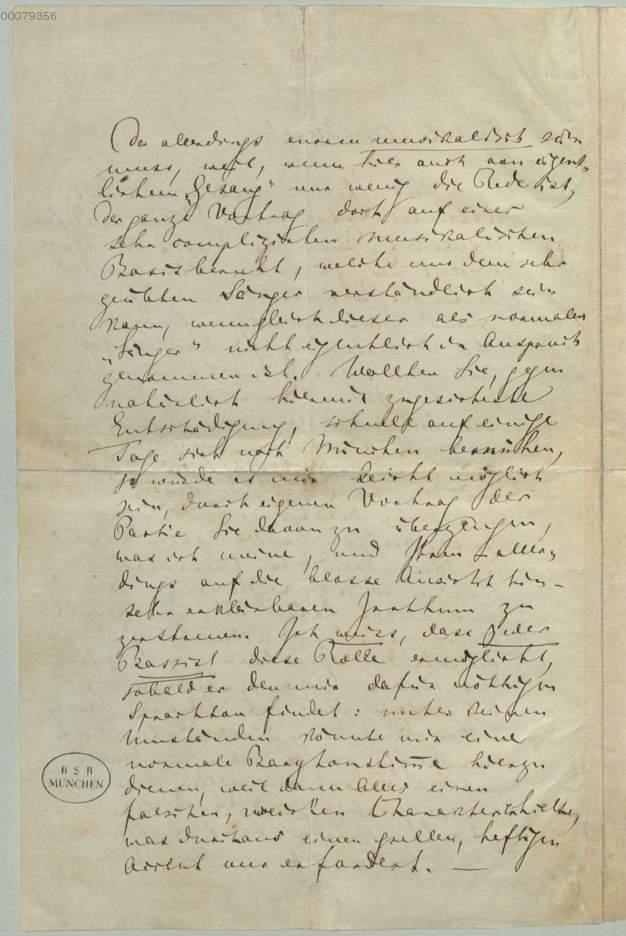 00079356
Der allerdings enorm musikalisch sein
muss, weil, wenn hier auch von eigent-
lichem „Gesang“ nur wenig die Rede ist,
der ganze Vortrag doch auf einer
sehr complizirten musikalischen
Basis beruht, welche nur dem sehr
geübten Sänger verständlich sein
kann, wenngleich dieser als normaler
„Singer“ nicht eigentlich in Anspruch
genommen ist. Wollten Sie, gegen
natürlich hiermit zugesicherte
Entschädigung, schnell auf einige
Tage sich nach München bemühen,
so würde es mir leicht möglich
sein, durch eigenen Vortrag der
Partie Sie davon zu überzeugen,
was ich meine, und Ihren allerdings
auf die blosse Ansicht hin
sehr erklärbaren Irrthum zu
zerstreuen. Ich weiss, dass jeder
Bassist diese Rolle ermöglicht,
sobald er den mir dafür nöthigen
Sprachton findet: unter keinen
Umständen könnte mir eine
normale Barytonstimme hierzu
dienen, weil dann Alles einen
falschen, weichen Charakter erhielte,
was durchaus einen grellen, heftigen
Accent nur erfordert. —
BSB
MÜNCHEN